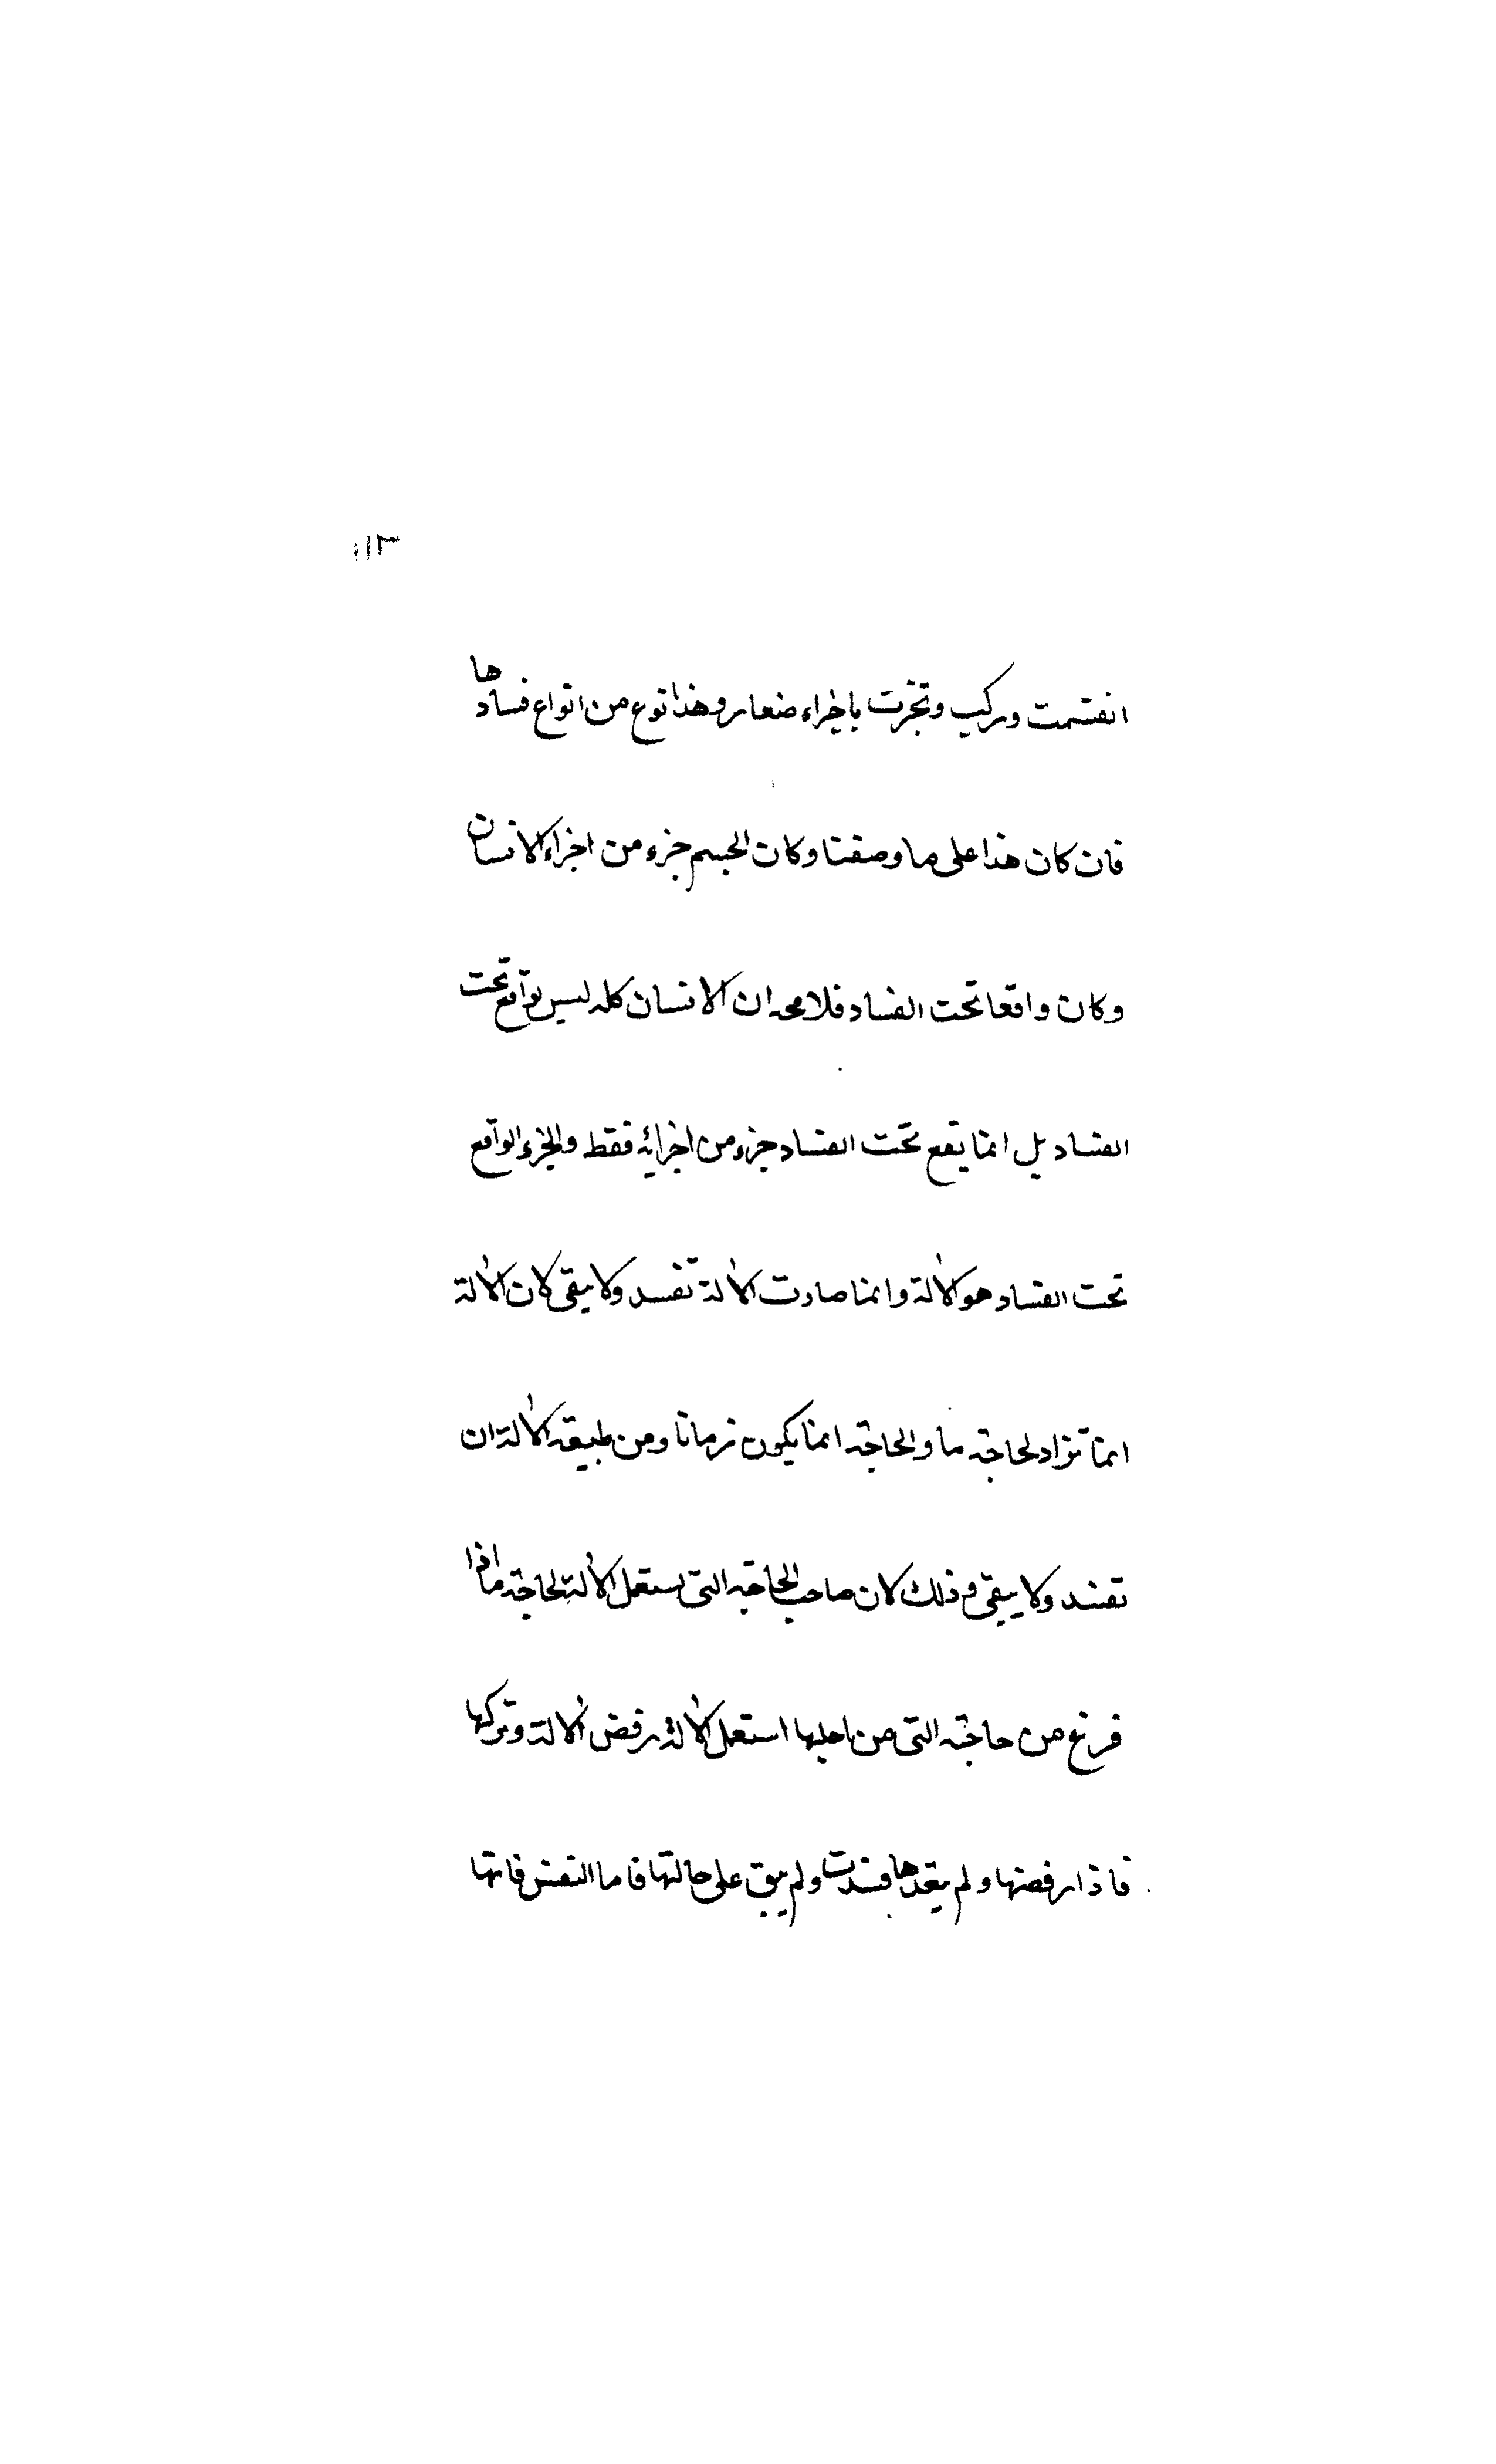 ١١٣
انقسمت وركب وتجزت باجزاء صغار وهذا نوع من انواع فسادها
فان كان هذا على ما وصفنا وكان الجسم جزء من اجزاء الانسان
وكان واقعا تحت الفساد فلا محه ان الانسان كله ليس بواقع تحت
الفساد بل انما يقع تحت الفساد جزء من اجزائه فقط والجزء الواقع
تحت الفساد هو الالة وانما صارت الالة تفسد ولا يبقى لان الالة
انما تراد لحاجة ما والحاجة انما يكون زمانا ومن طبيعة الالة ان
تفسد ولا يبقى وذلك لان صاحب الحاجة التى يستعمل الالة لحاجة ما اذا
فرغ من حاجته التى من اجلها استعمل الالة رفض الالة وتركها
فاذا رفضها ولم يتعدها فسدت ولم يبق على حالتها فاما النفس فانها